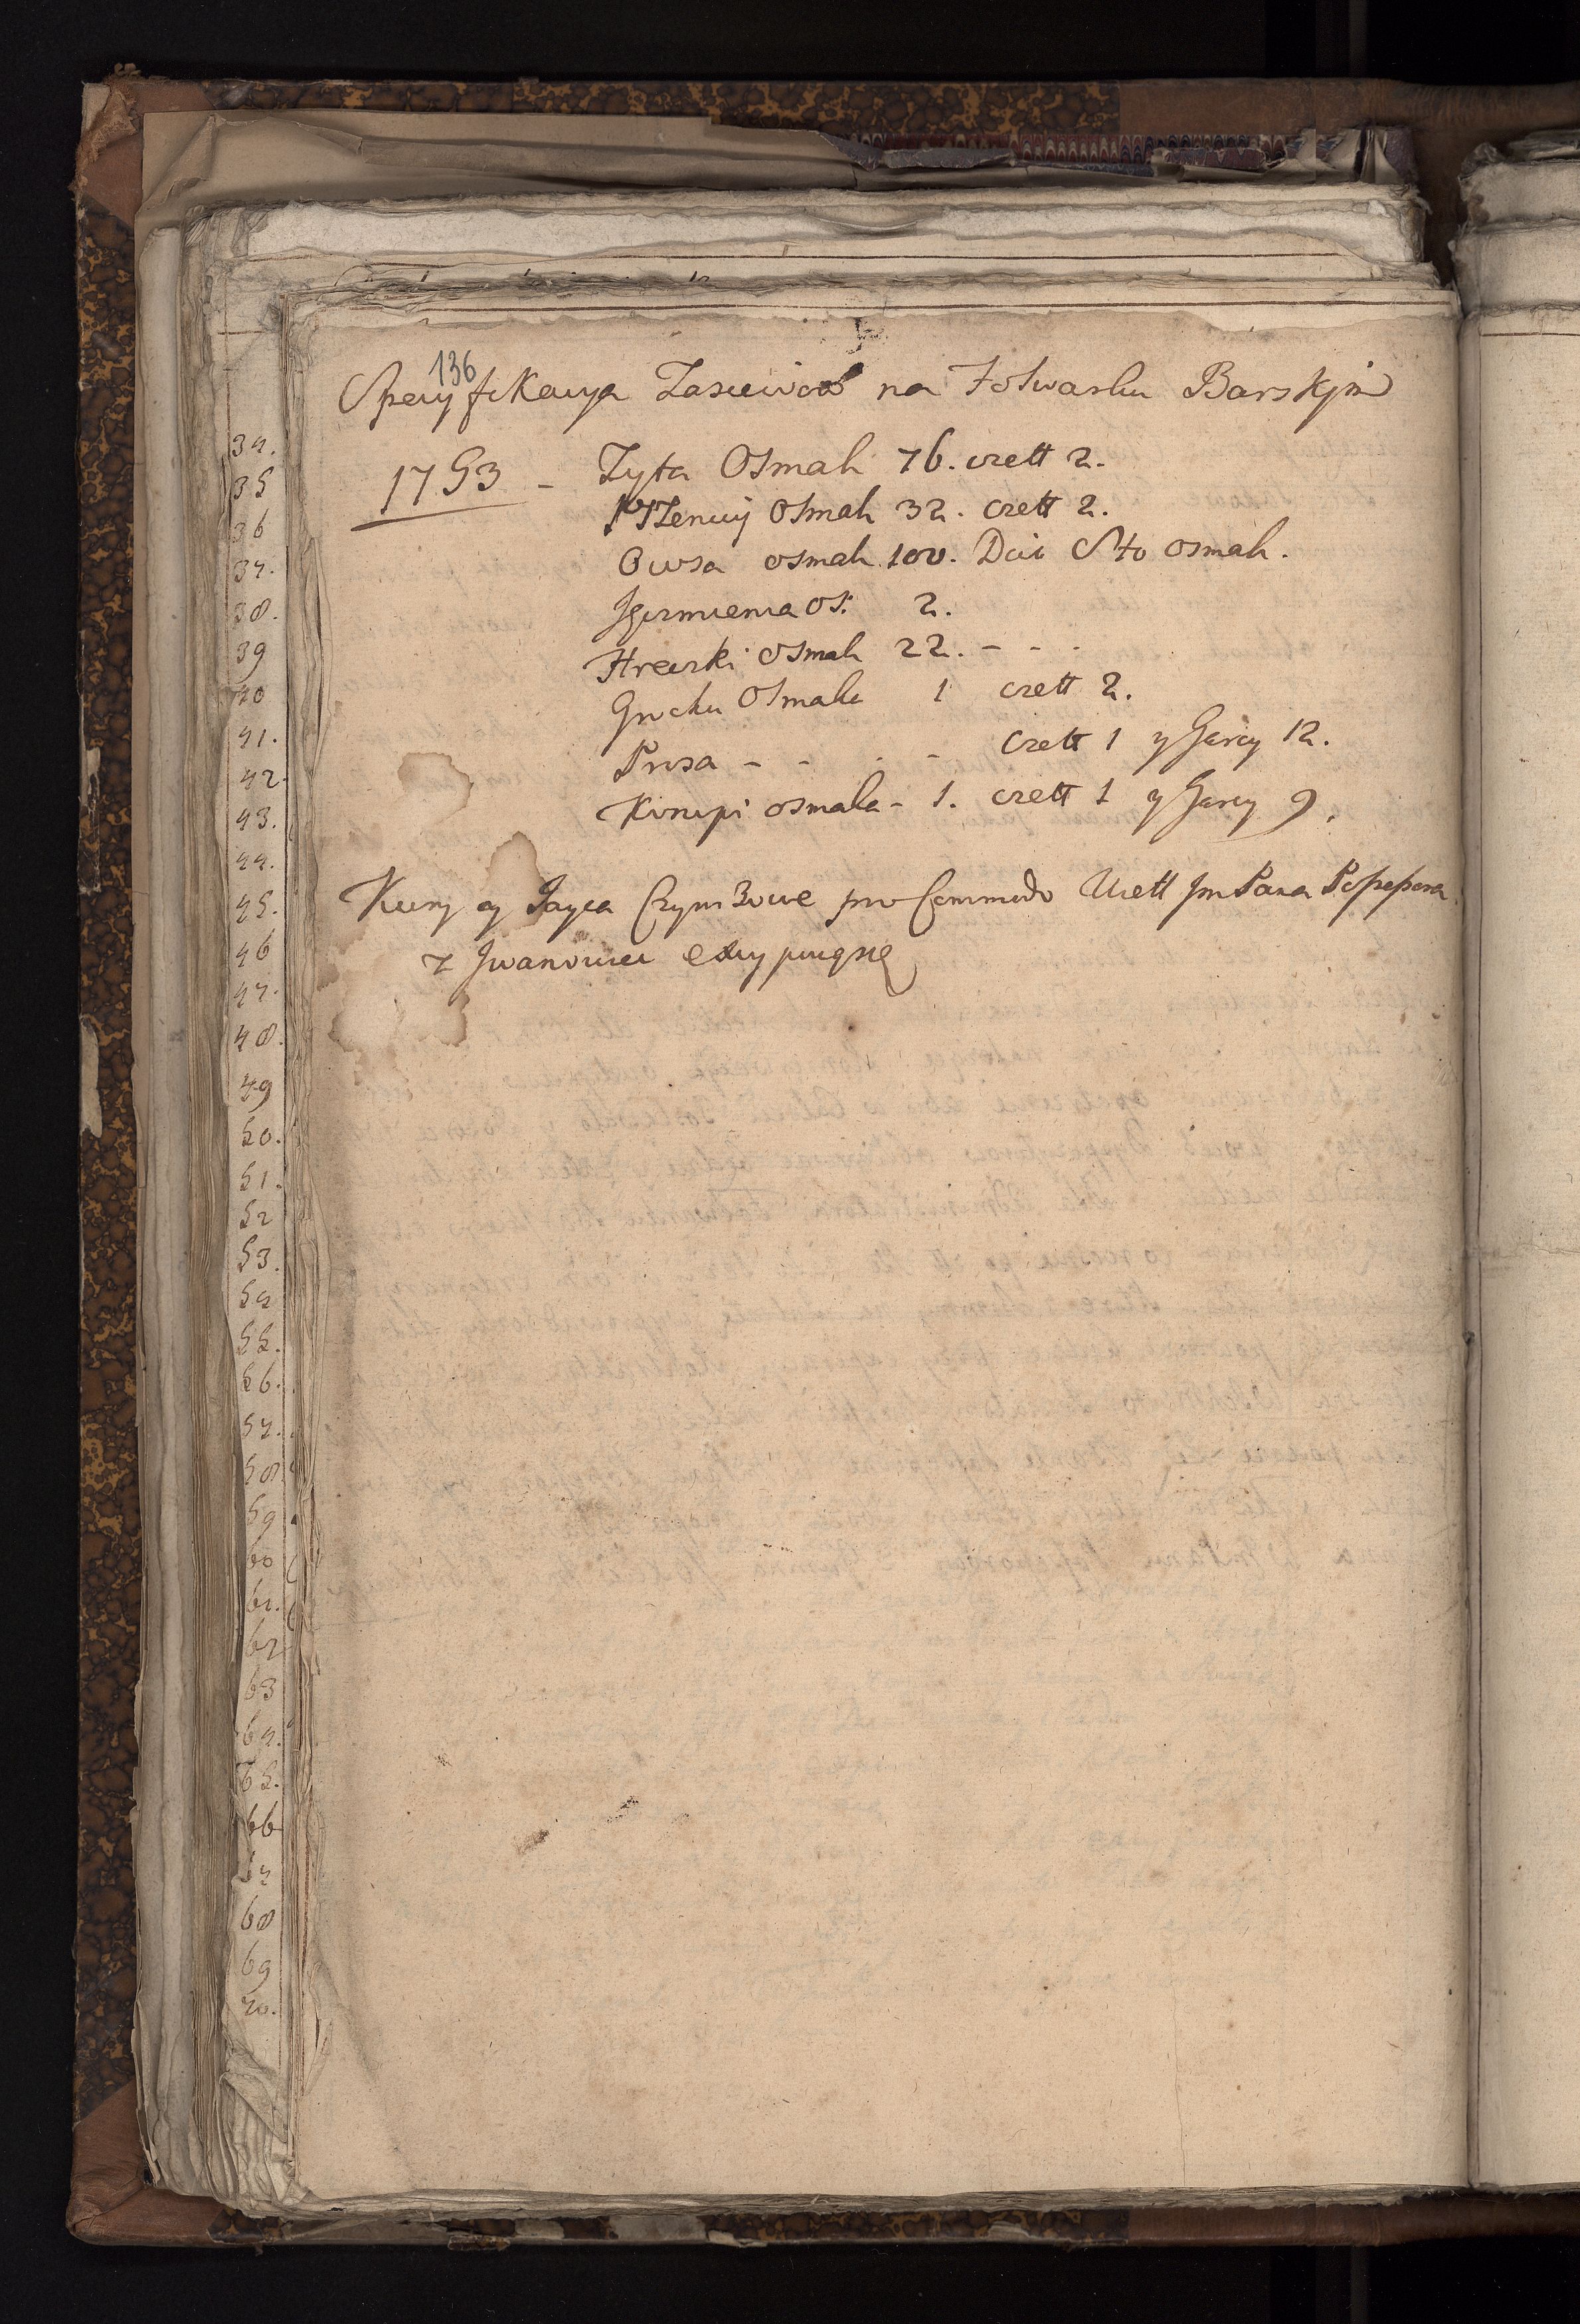 136
Specyfikacya Zasiewow na Folwarku Barskjm
1753 - Zyta Osmak 76. czett 2.
Pszenicy Osmak 32. czett 2.
Owsa osmak 100. Dico Sto osmak.
Jęczmienia Os: 2.
Hreczki osmak 22. - - -
Grochu Osmaka 1 czett 2.
Prosa - - - - czett 1 y Garcy 12.
Konopi osmaka - 1. czett 1 y Garcy 9.
Kury y Jayca Czynszowe pro Commodo Wiett Jm Pana
z Jwanowiec
34.
35
36
37.
38.
39
40
41.
42.
43.
44.
45.
46
47.
48.
49
50.
51.
52
53.
54
55.
56.
57.
58.
59
60
61.
62
63
64.
65.
66
67
68
69
70.